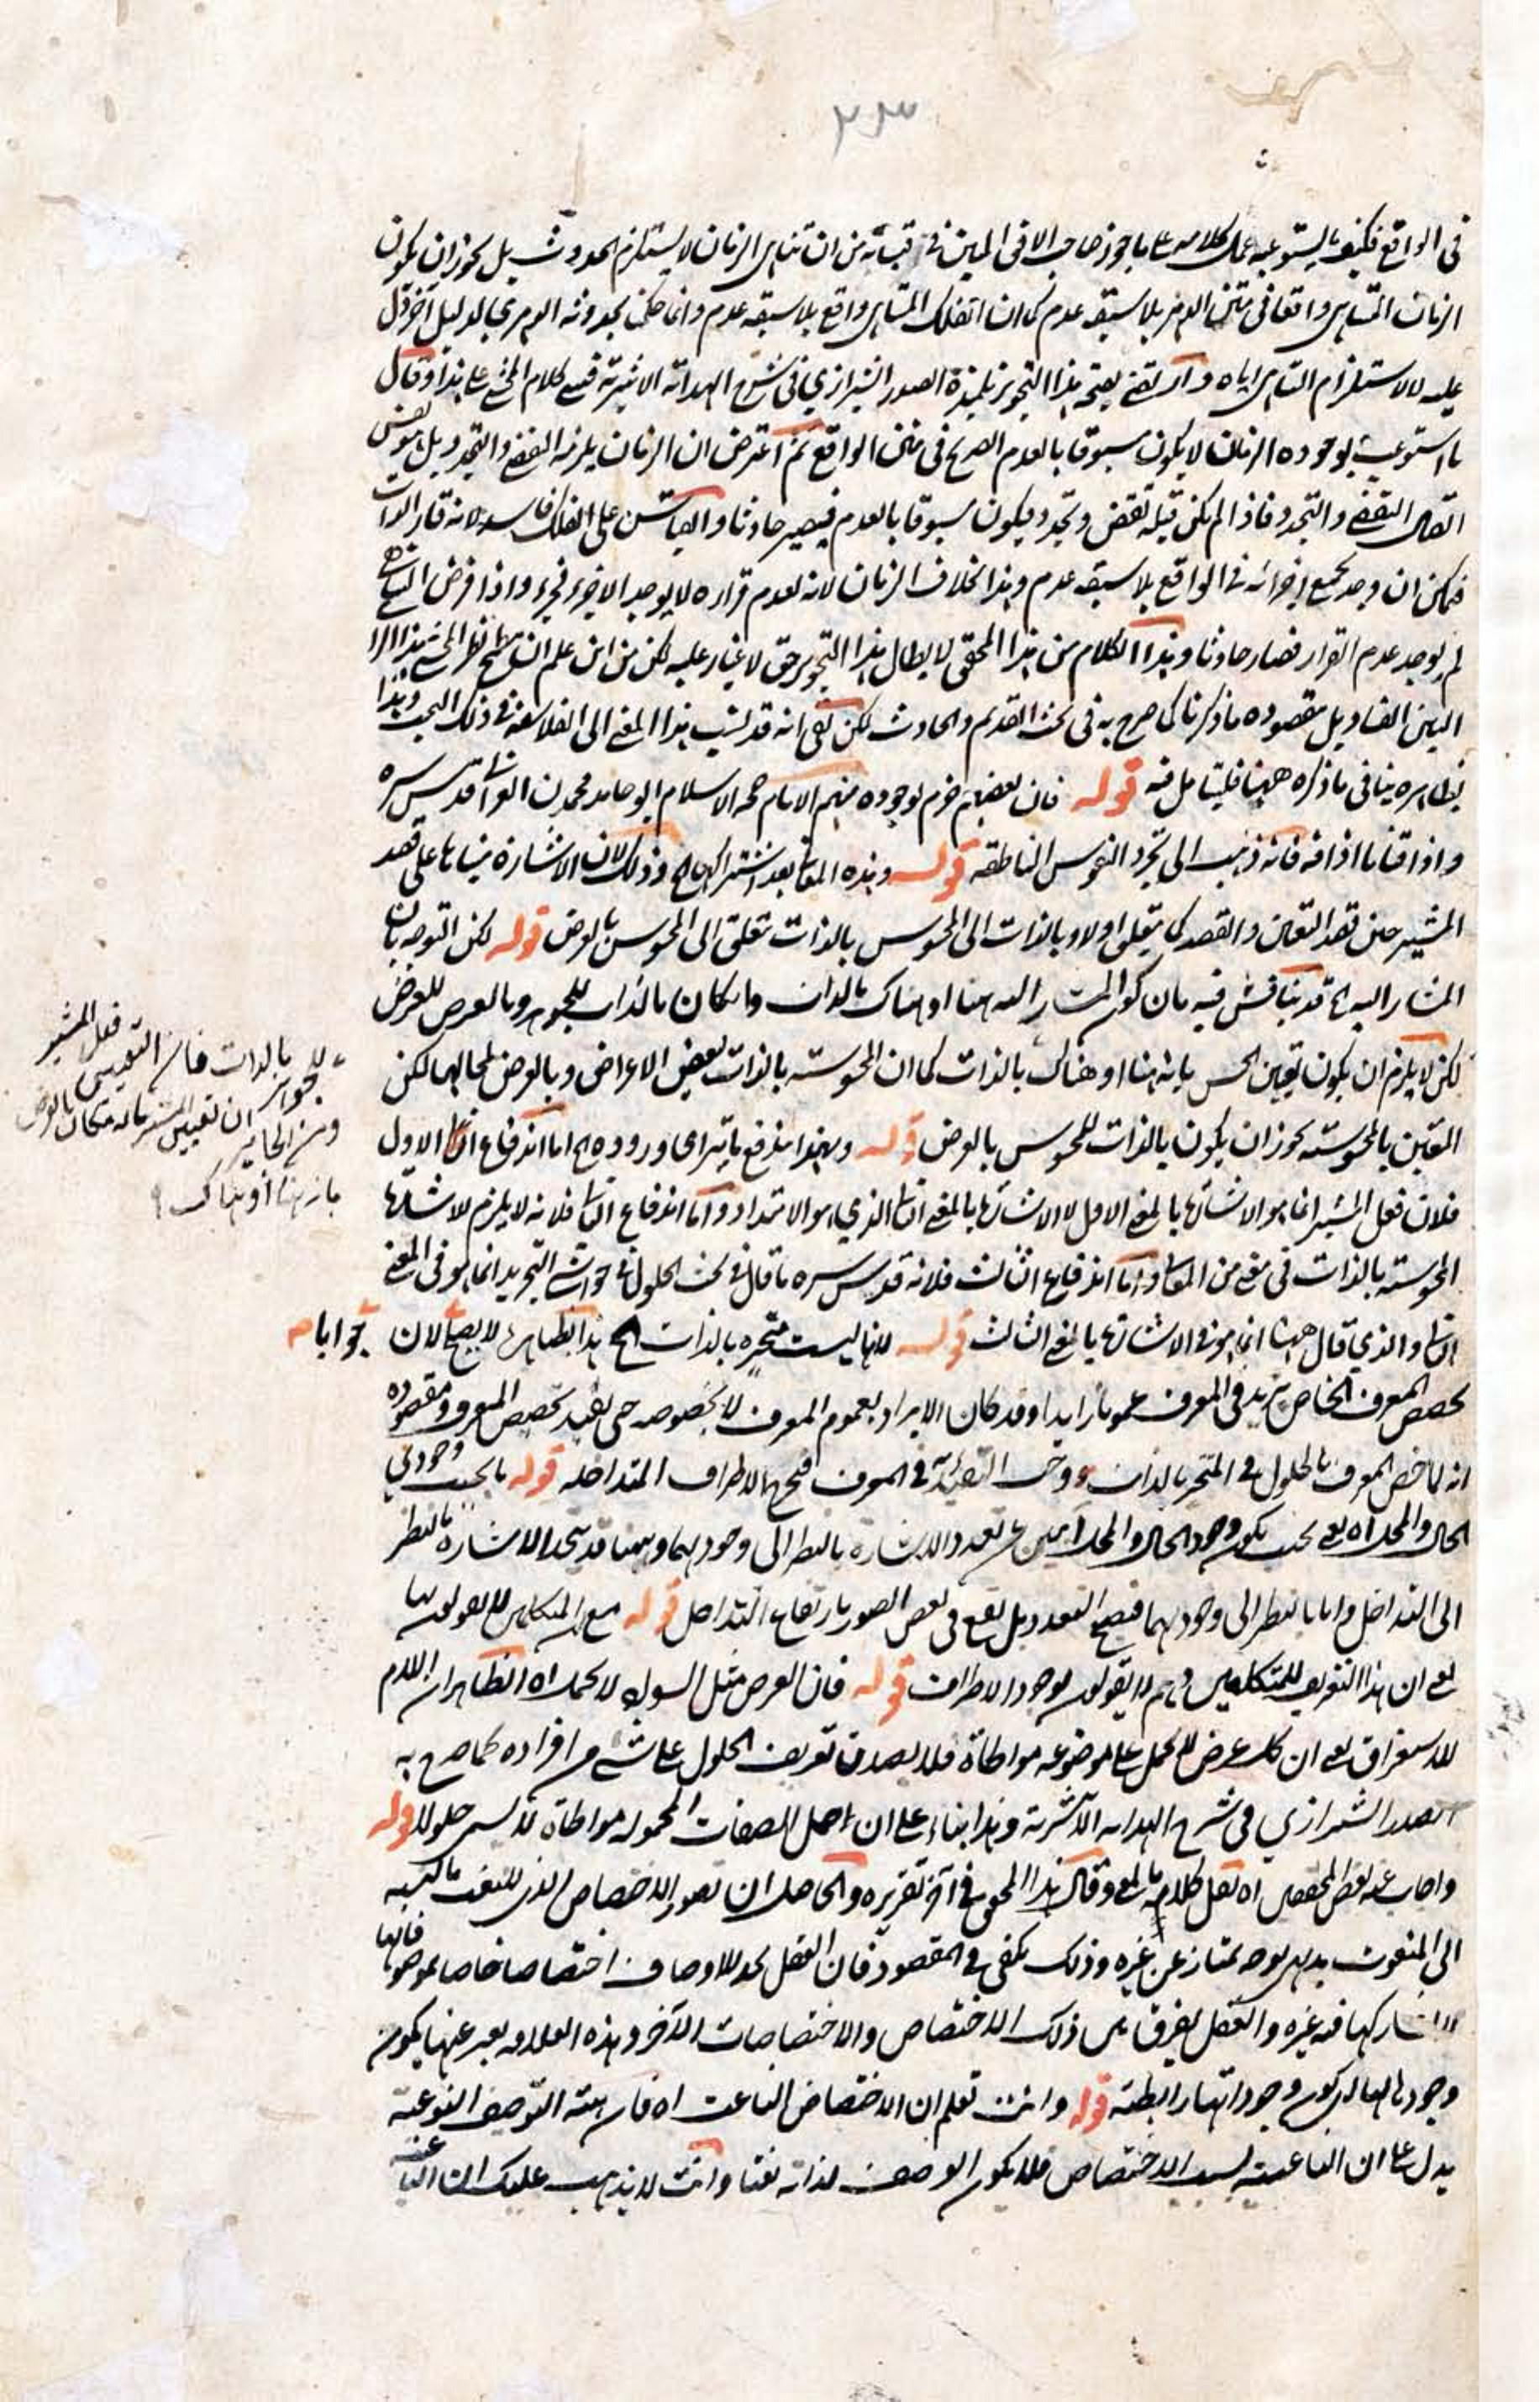 ٢٣
في الواقع فكيف يستوعبه عمل كلامه على ما جوز صاحب الافق المبين في قبساته من ان تناهي الزمان لا يستلزم الحدوث بل يجوز ان يكون
الزمان المتناهي واقعا في متن الدهر بلا سبقه عدم كما ان الفلك المتناهي واقع بلا سبقه عدم وانما حكمنا بحدوثه الدهري بالدليل آخر دل
عليه لا لاستلزام التناهي اياه وارتضى بهذا التجويز تلميذه الصدر الشيرازي في شرح الهداية الاثيرية كلام المحشي على هذا وقال
ما استوعب بوجوده الزمان لا يكون مسبوقا بالعدم الصريح في متن الواقع ثم اعترض ان الزمان يلزمه التقضي والتجدد بل هو نفس
اتصال التقضي والتجدد فاذا لم يكن قبله تقض وتجدد فيكون مسبوقا بالعدم فيصير حادثا والقياس على الفلك فاسد لانه قار الذات
فيمكن ان وجد بجميع اجزائه في الواقع بلا سبقه عدم وهذا بخلاف الزمان لانه لعدم قراره لا يوجد الا جزء فجزء واذا فرض التناهي
لم يوجد عدم القرار فصار حادثا وهذا الكلام من هذا المحقق لابطال هذا التجويز حق لا غبار عليه لكن من اين علم ان مطمح نظر المحشي هذا الامر
البين الفساد بل مقصوده ما ذكرنا كما صرح به في بحث القديم والحادث لكن بقي انه قد نسب هذا المعنى الى الفلاسفة في ذلك البحث وهذا
بظاهره ينافي ما ذكره ههنا فليتامل فيه قوله فان بعضهم جزم بوجوده منهم الامام حجة الاسلام ابو حامد محمد بن الغزالي قدس سره
واذاقنا ما اذاقه فانه ذهب الى تجرد النفوس الناطقة قوله وهذه المعاني بعد اشتراكها الخ وذلك لان الاشارة مبناها على قصد
المشير حين قصد التعيين والقصد كما يتعلق اولا وبالذات الى المحسوس بالذات تتعلق الى المحسوس بالعرض قوله لكن التوجه بان
المشار اليه الخ قد يناقش فيه بان كون المشار اليه هنا او هناك بالذات وان كان بالذات للجوهر وبالعرض للعرض
لكن لا يلزم ان يكون تعيين الحس بانه هنا او هناك بالذات كما ان المحسوسة بالذات لبعض الاعراض وبالعرض لمحالها لكن
التعين بالمحسوسة يجوز ان يكون بالذات للمحسوس بالعرض قوله وبهذا يندفع ما يترامى وروده الخ اما اندفاع الاول
فلان فعل المشير انما هو الاشارة بالمعنى الاول لا الاشارة بالمعنى الثاني الذي هو الامتداد واما اندفاع الثاني فلانه لا يلزم للاشارة
المحسوسة بالذات في معنى من المعاني واما اندفاع الثالث فلانه قدس سره ما قال في بحث الحلول في حواشي التجريد انما هو في المعنى
الثاني والذي قال ههنا انما هو في الاشارة بالمعنى الثالث قوله لانها ليست متحيزة بالذات الخ هذا بظاهره لا يصح لان
جوابا
تخصيص المعرف الخاص يزيد في المعرف عموما زايدا وقد كان الايراد بعموم المعرف لا بخصوصه حتى يفيد تخصيص المعرف ومقصوده
انه لما خص المعرف بالحلول في المتحيز بالذات في المعرف فخرج الاطراف المتداخلة قوله بحسب وجودي
الحال والمحل اه يعني بحيث يكون وجود الحال والمحل عن تعدد الاشارة بالنظر الى وجودهما وههنا قد يتحد الاشارة بالنظر
الى التداخل واما بالنظر الى وجودهما فيصح التعدد بل يقع في بعض الصور بارتفاع التداخل قوله مع ان المتكلمين لا يقولون بها
يعني ان هذا التعريف للمتكلمين وهم لا يقولون بوجود الاطراف قوله فان العرض مثل السواد لا يحمل اه الظاهر ان اللام
للاستغراق يعني ان كل عرض لا يحمل على موضوعه مواطاة فلا يصدق تعريف الحلول على شيء من افراده كما صرح به
الصدر الشيرازي في شرح الهداية الاثيرية وهذا بناء على ان حمل الصفات المحمولة مواطاة ليس حلولا قوله
واجاب عنه بعض المحققين اه نقل كلامه بالمعنى وقال هذا المحقق في آخر تقريره والحاصل ان تصور الاختصاص الذي للنعت بالنسبة
الى المنعوت بديهي بوجه يمتاز عن غيره وذلك يكفي في المقصود فان العقل يجد للاوصاف اختصاصا خاصا بموصوفاتها
لا يشاركها فيه غيره والعقل يفرق بين ذلك الاختصاص والاختصاصات الآخر وهذه العلاقة يعبر عنها بكون
وجودها لها او يكون وجوداتها رابطية قوله وانت تعلم ان الاختصاص الناعت اه فان هيئة التوصيف النوعية
يدل على ان الناعتية بسبب الاختصاص فلا يكون الوصف لذاته نعتا وانت لا يذهب عليك ان الناعتية
بالذات فان التعيين فعل المشير
ومن الجائز ان تعيين المشير ما له مكان بالعرض
بانه هنا او هناك